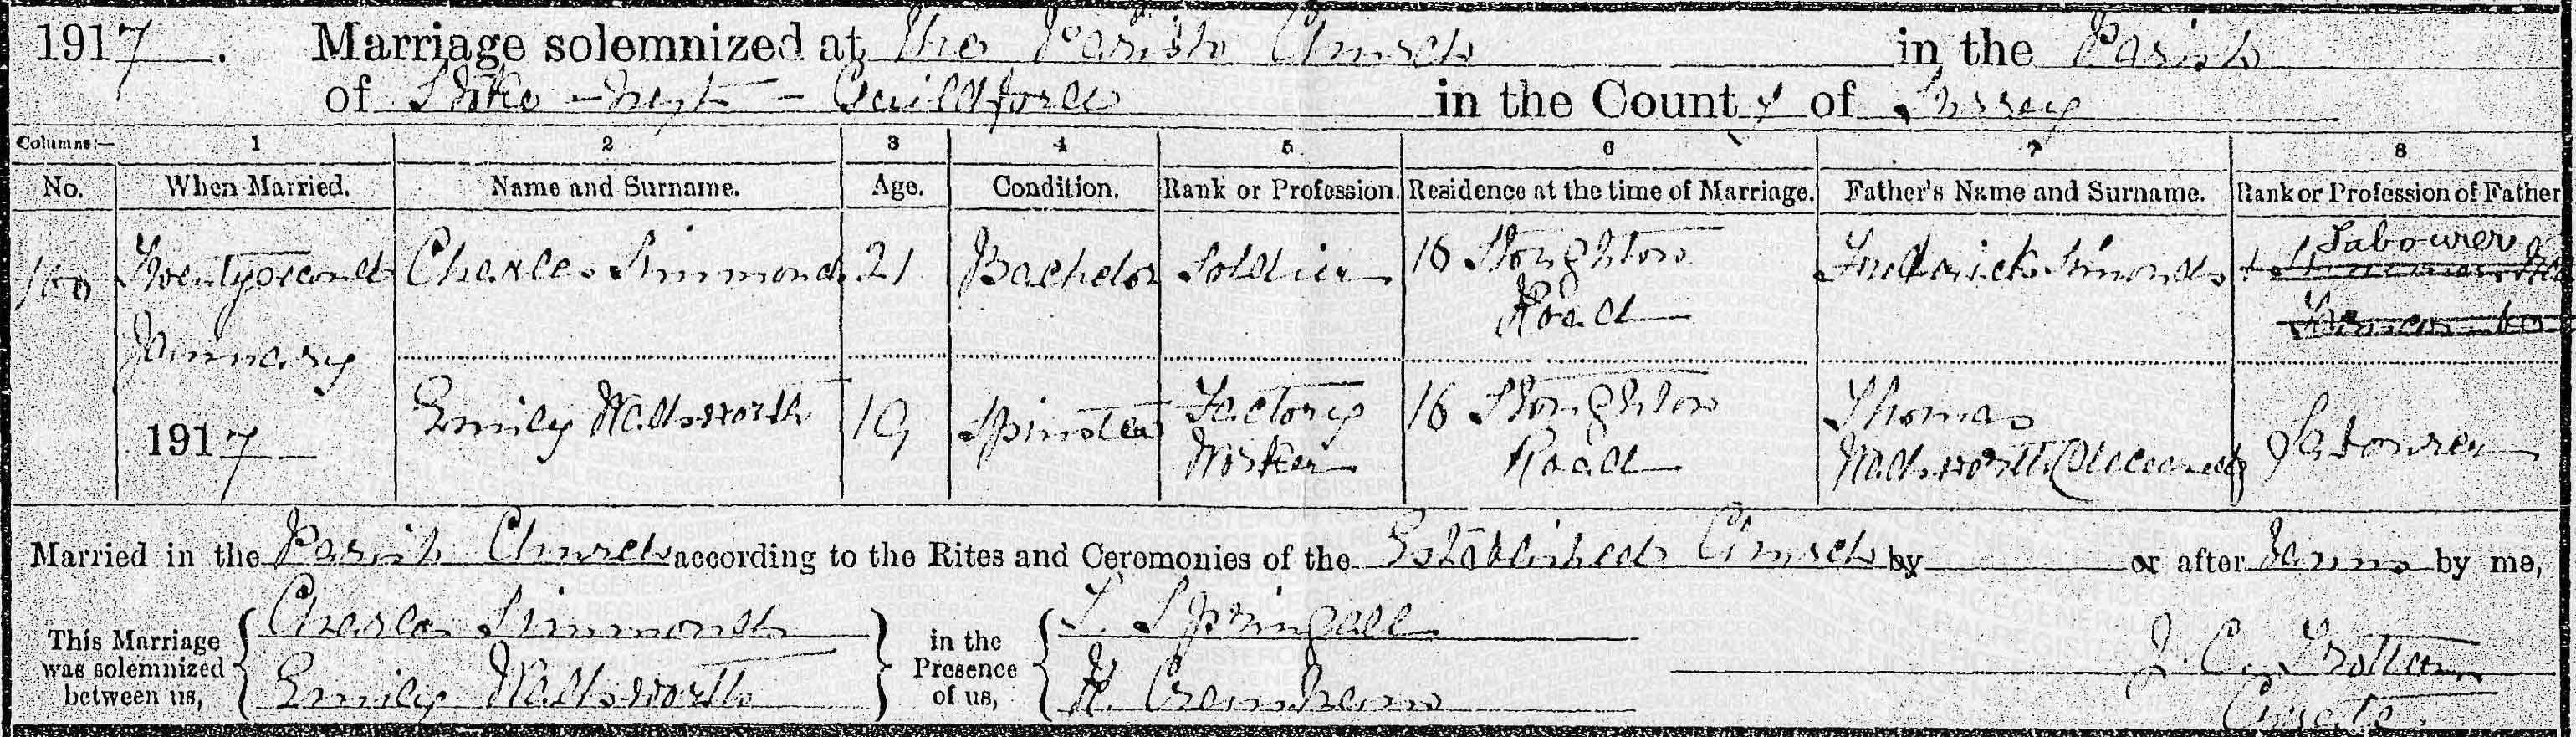 1917. Marriage solemnized at The Parish Church in the Parish
of Stoke-next-Guildford in the County of Surrey
Columns:— 1 2 3 4 5 6 7 8
No. When Married. Name and Surname. Age. Condition. Rank or Profession. Residence at the time of Marriage. Father's Name and Surname. Rank or Profession of Father
100 Twenty second Charles Simmonds 21 Bachelor Soldier 16 Stoughton Frederick Simonds + Labourer
January Road
1917 Emily Wadsworth 19 Spinster Factory 16 Stoughton Thomas Labourer
Worker Road Wadsworth (deceased)
Married in the Parish Church according to the Rites and Ceremonies of the Established Church by or after Banns by me,
This Marriage was solemnized between us, Charles Simmonds
Emily Wadsworth
in the Presence of us, Springall
H.
J. C. Trotter
Curate.